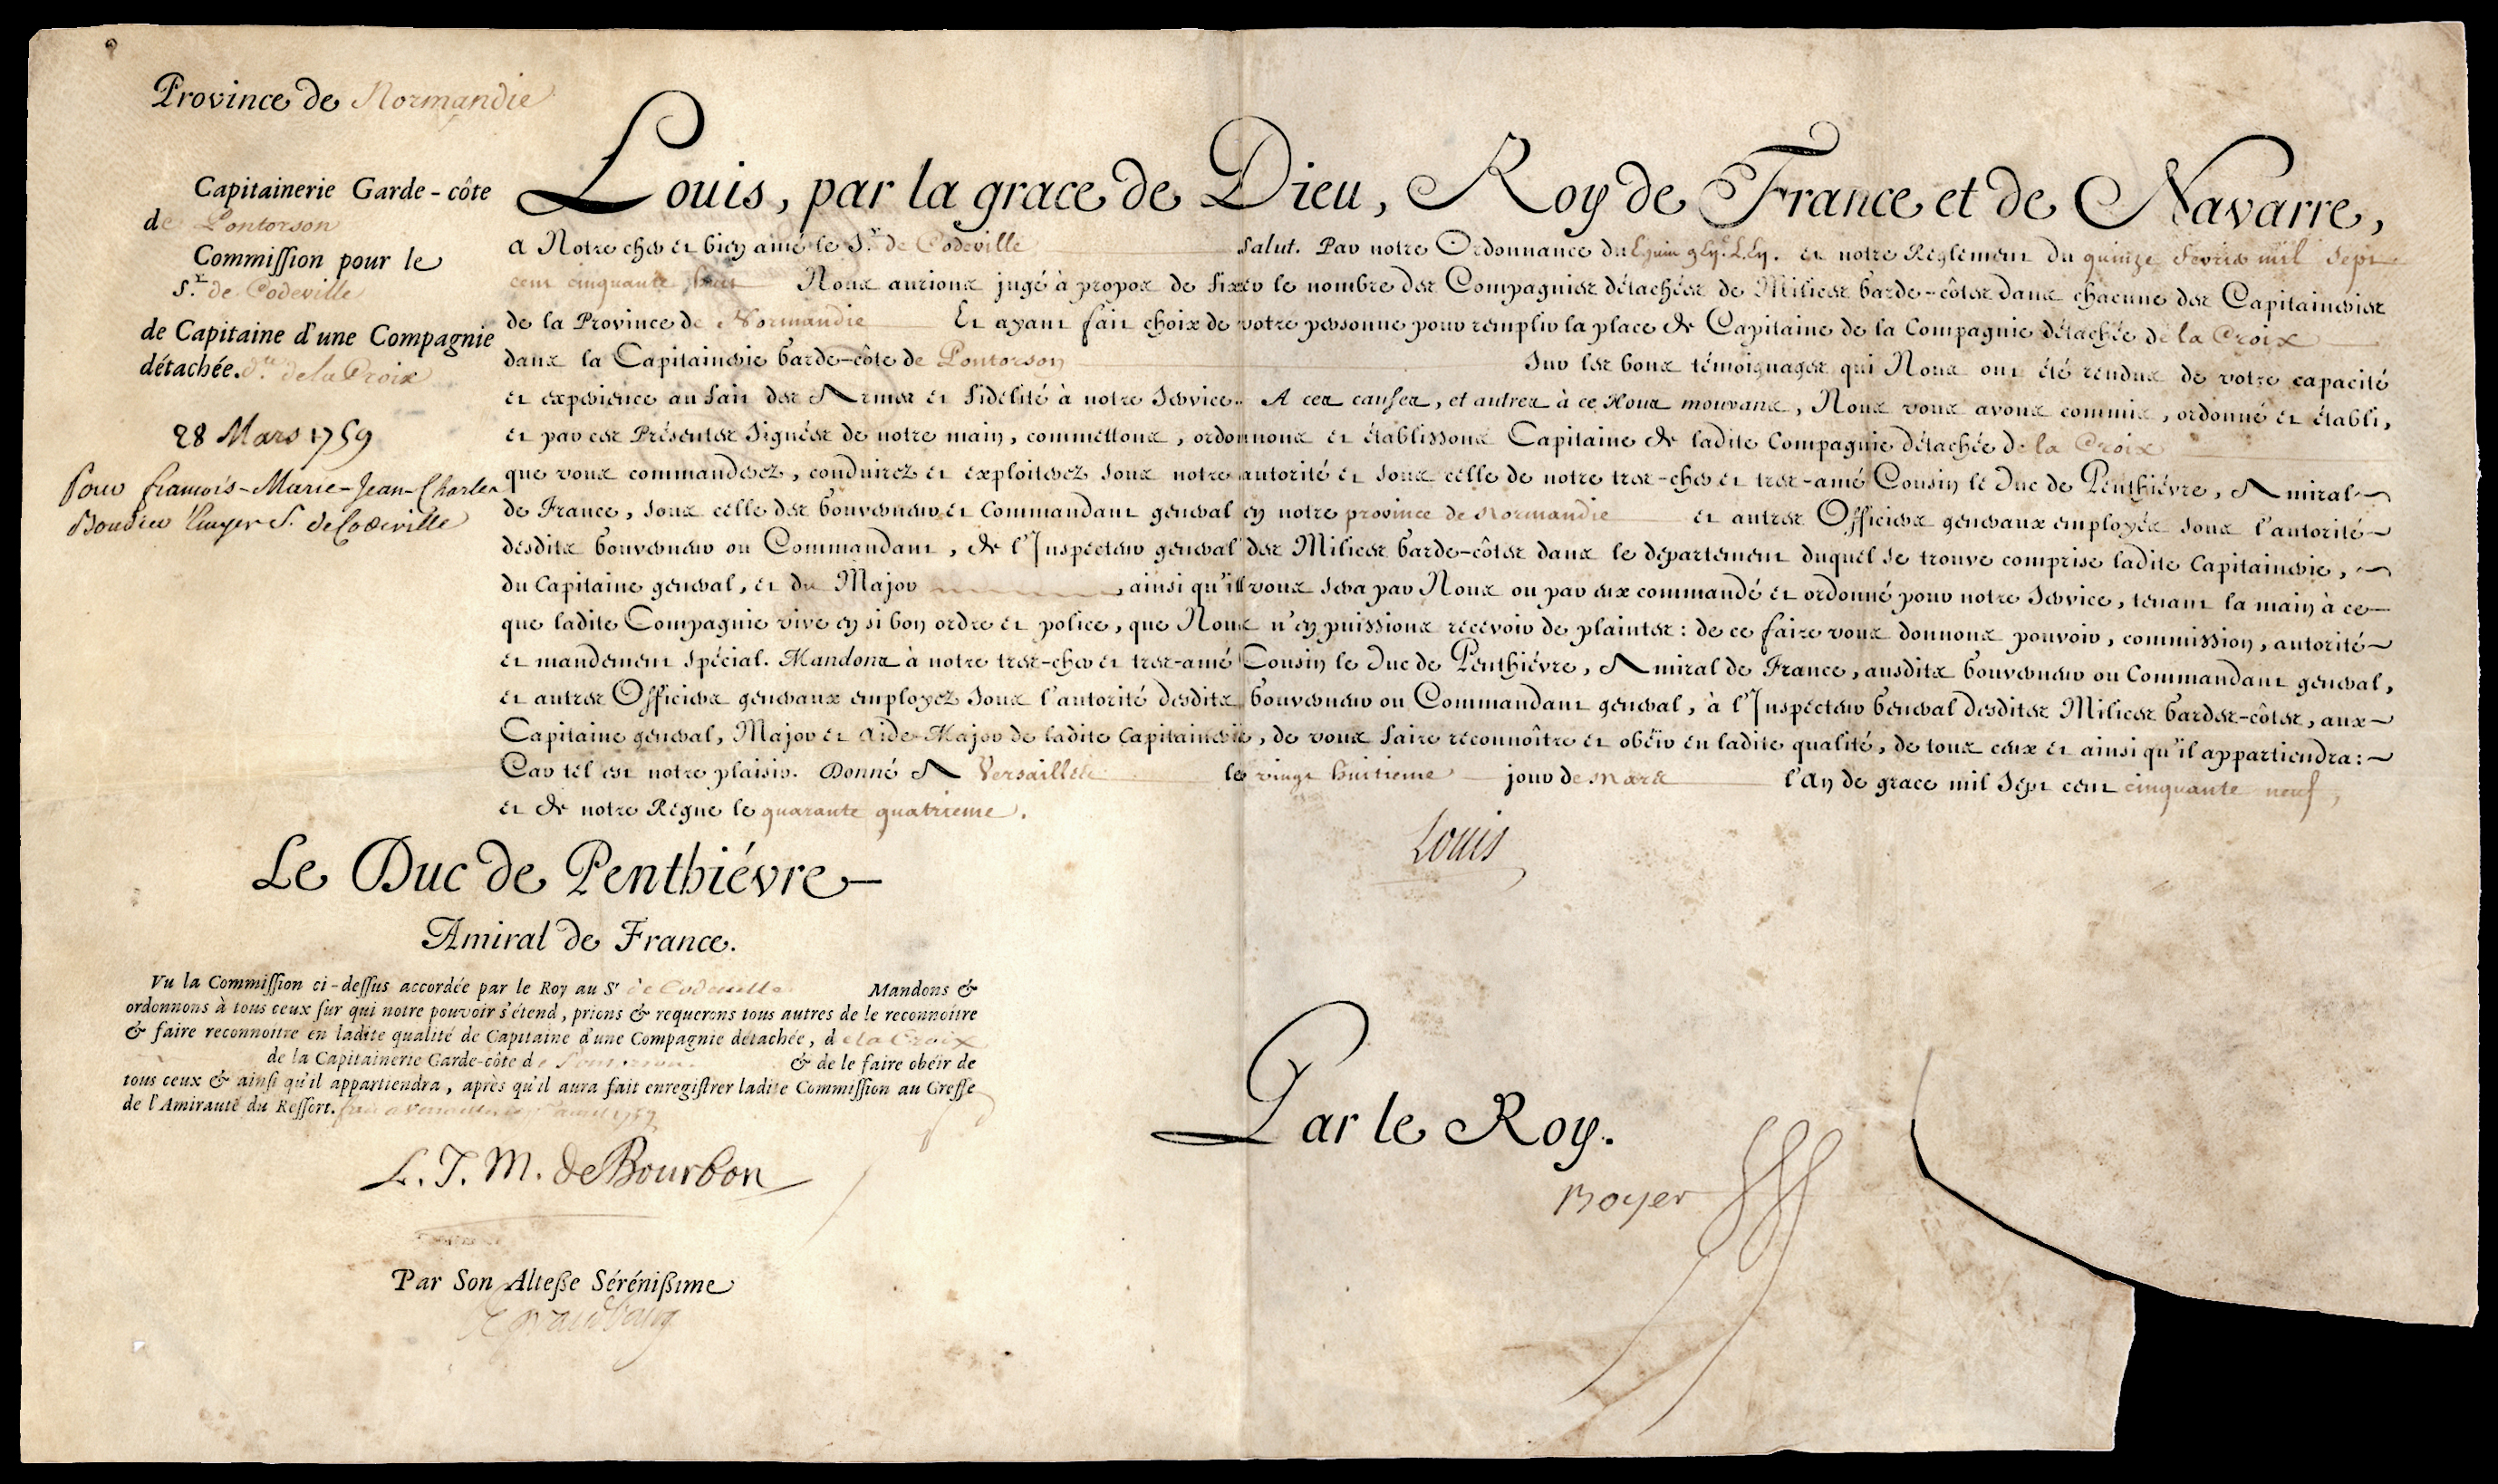 Province de Normandie
Capitainerie Garde-côte
de Pontorson
Commission pour le
S.r de Codeville
de Capitaine d'une Compagnie
détachée. d.te de la Croix
28 Mars 1759
Pour francois-Marie-Jean-Charles
Boudier Ecuyer S. de Codeville
Louis, par la grace de Dieu, Roy de France et de Navarre,
A Notre cher et bien amé le S.r de Codeville Salut. Par notre Ordonnance du et notre Réglement du quinze fevrier mil sept
cent cinquante huit Nous aurions jugé à propos de fixer le nombre des Compagnies détachées de Milices Garde-côtes dans chacune des Capitaineries
de la Province de Normandie Et ayant fait choix de votre personne pour remplir la place de Capitaine de la Compagnie détachée de la Croix
dans la Capitainerie Garde-côte de Pontorson Sur les bons témoignages qui Nous ont été rendus de votre capacité
et expérience au fait des Armes et fidélité à notre Service. A ces causes, et autres à ce Nous mouvans, Nous vous avons commis, ordonné et établi,
et par ces Présentes Signées de notre main, commettons, ordonnons et établissons Capitaine de ladite Compagnie détachée de la Croix
que vous commanderez, conduirez et exploiterez sous notre autorité et sous celle de notre tres-cher et tres-amé Cousin le Duc de Penthiévre, Amiral
de France, sous celle des Gouverneur et Commandant general en notre province de Normandie et autres Officiers generaux employés sous l'autorité
desdits Gouverneur ou Commandant, de l'Inspecteur general des Milices Garde-côtes dans le département duquel se trouve comprise ladite Capitainerie,
du Capitaine general, et du Major, ainsi qu'il vous sera par Nous ou par eux commandé et ordonné pour notre Service, tenant la main à ce
que ladite Compagnie vive en si bon ordre et police, que Nous n'en puissions recevoir de plaintes: de ce faire vous donnons pouvoir, commission, autorité
et mandement spécial. Mandons à notre tres-cher et tres-amé Cousin le Duc de Penthiévre, Amiral de France, ausdits Gouverneur ou Commandant general,
et autres Officiers generaux employez sous l'autorité desdits Gouverneur ou Commandant general, à l'Inspecteur General desdites Milices Gardes-côtes, aux
Capitaine general, Major et Aide-Major de ladite Capitainerie, de vous faire reconnoître et obéir en ladite qualité, de tous ceux et ainsi qu'il appartiendra:
Car tel est notre plaisir. Donné A Versailles le vingt huitieme jour de mars l'An de grace mil sept cent cinquante neuf,
et de notre Régne le quarante quatrieme.
Louis
Le Duc de Penthiévre
Amiral de France.
Vu la Commission ci-dessus accordée par le Roy au Sr de Codeville Mandons &
ordonnons à tous ceux sur qui notre pouvoir s'étend, prions & requerons tous autres de le reconnoître
& faire reconnoitre en ladite qualité de Capitaine d'une Compagnie détachée, de la Croix
de la Capitainerie Garde-côte de Pontorson & de le faire obéir de
tous ceux & ainsi qu'il appartiendra, après qu'il aura fait enregistrer ladite Commission au Greffe
de l'Amirauté du Ressort. fait a Versailles avril 1759
L. J. M. de Bourbon
Par Son Altesse Sérénissime
Par le Roy.
Boyer